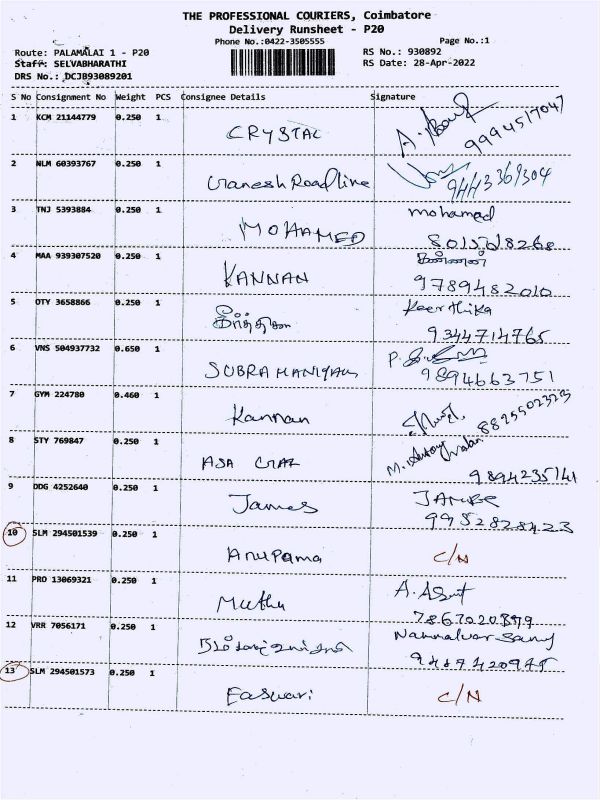 THE PROFESSIONAL COURIERS, Coimbatore
Delivery Runsheet - P20
Phone No.:0422-3505555
Page No.:1
Route: PALAMALAI 1 - P20
RS No.: 930892
Staff: SELVABHARATHI
RS Date: 28-Apr-2022
DRS No.: DCJB93089201
S No Consignment No Weight PCS Consignee Details Signature
1 KCM 21144779 0.250 1
CRYSTAL 9994517047
2 NLM 60393767 0.250 1
Ganesh Roadline 9443369304
3 TNJ 5393884 0.250 1 mohamed
MOHAMED
4 MAA 939307520 0.250 1 கண்ணன்
KANNAN 9789482010
5 OTY 3658866 0.250 1 Keerthika
கீர்த்திகா 9344714765
6 VNS 504937732 0.650 1
SUBRAMANIYAM 9894663751
7 GYM 224780 0.460 1
Kannan 8825502323
8 STY 769847 0.250 1
9894235141
9 DDG 4252640 0.250 1
James 9952828423
10 SLM 294501539 0.250 1
Anupama C/N
11 PRO 13069321 0.250 1
Muthu
12 VRR 7056171 0.250 1
13 SLM 294501573 0.250 1
Easwari C/N